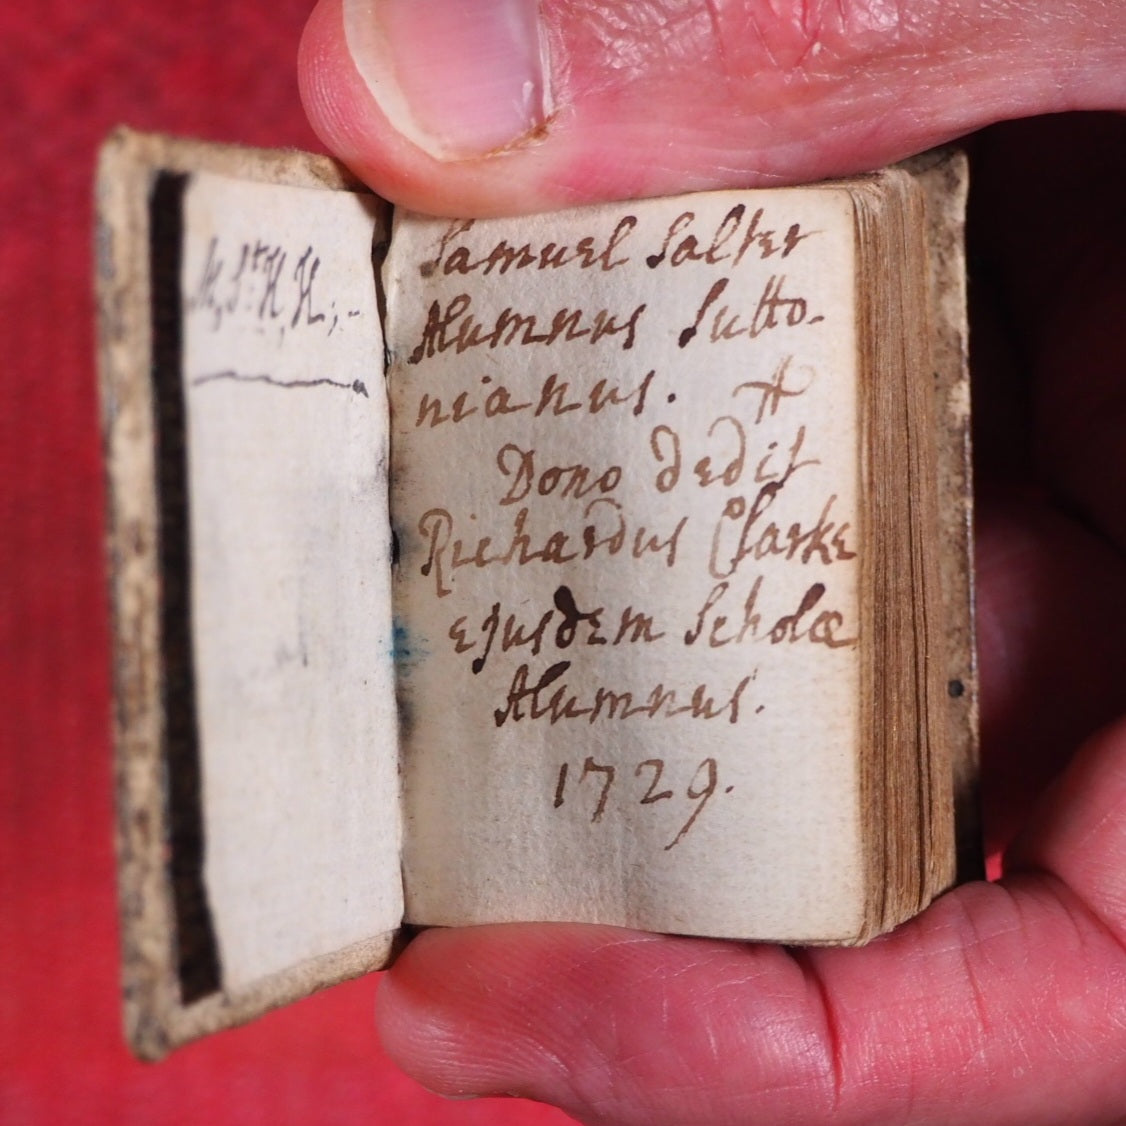 M, St H, H,;-
Samuel Salter
Alumnus Sutto-
nianus. A
Dono dedit
Richardus Clarke
ejusdem Scholæ
Alumnus.
1729.